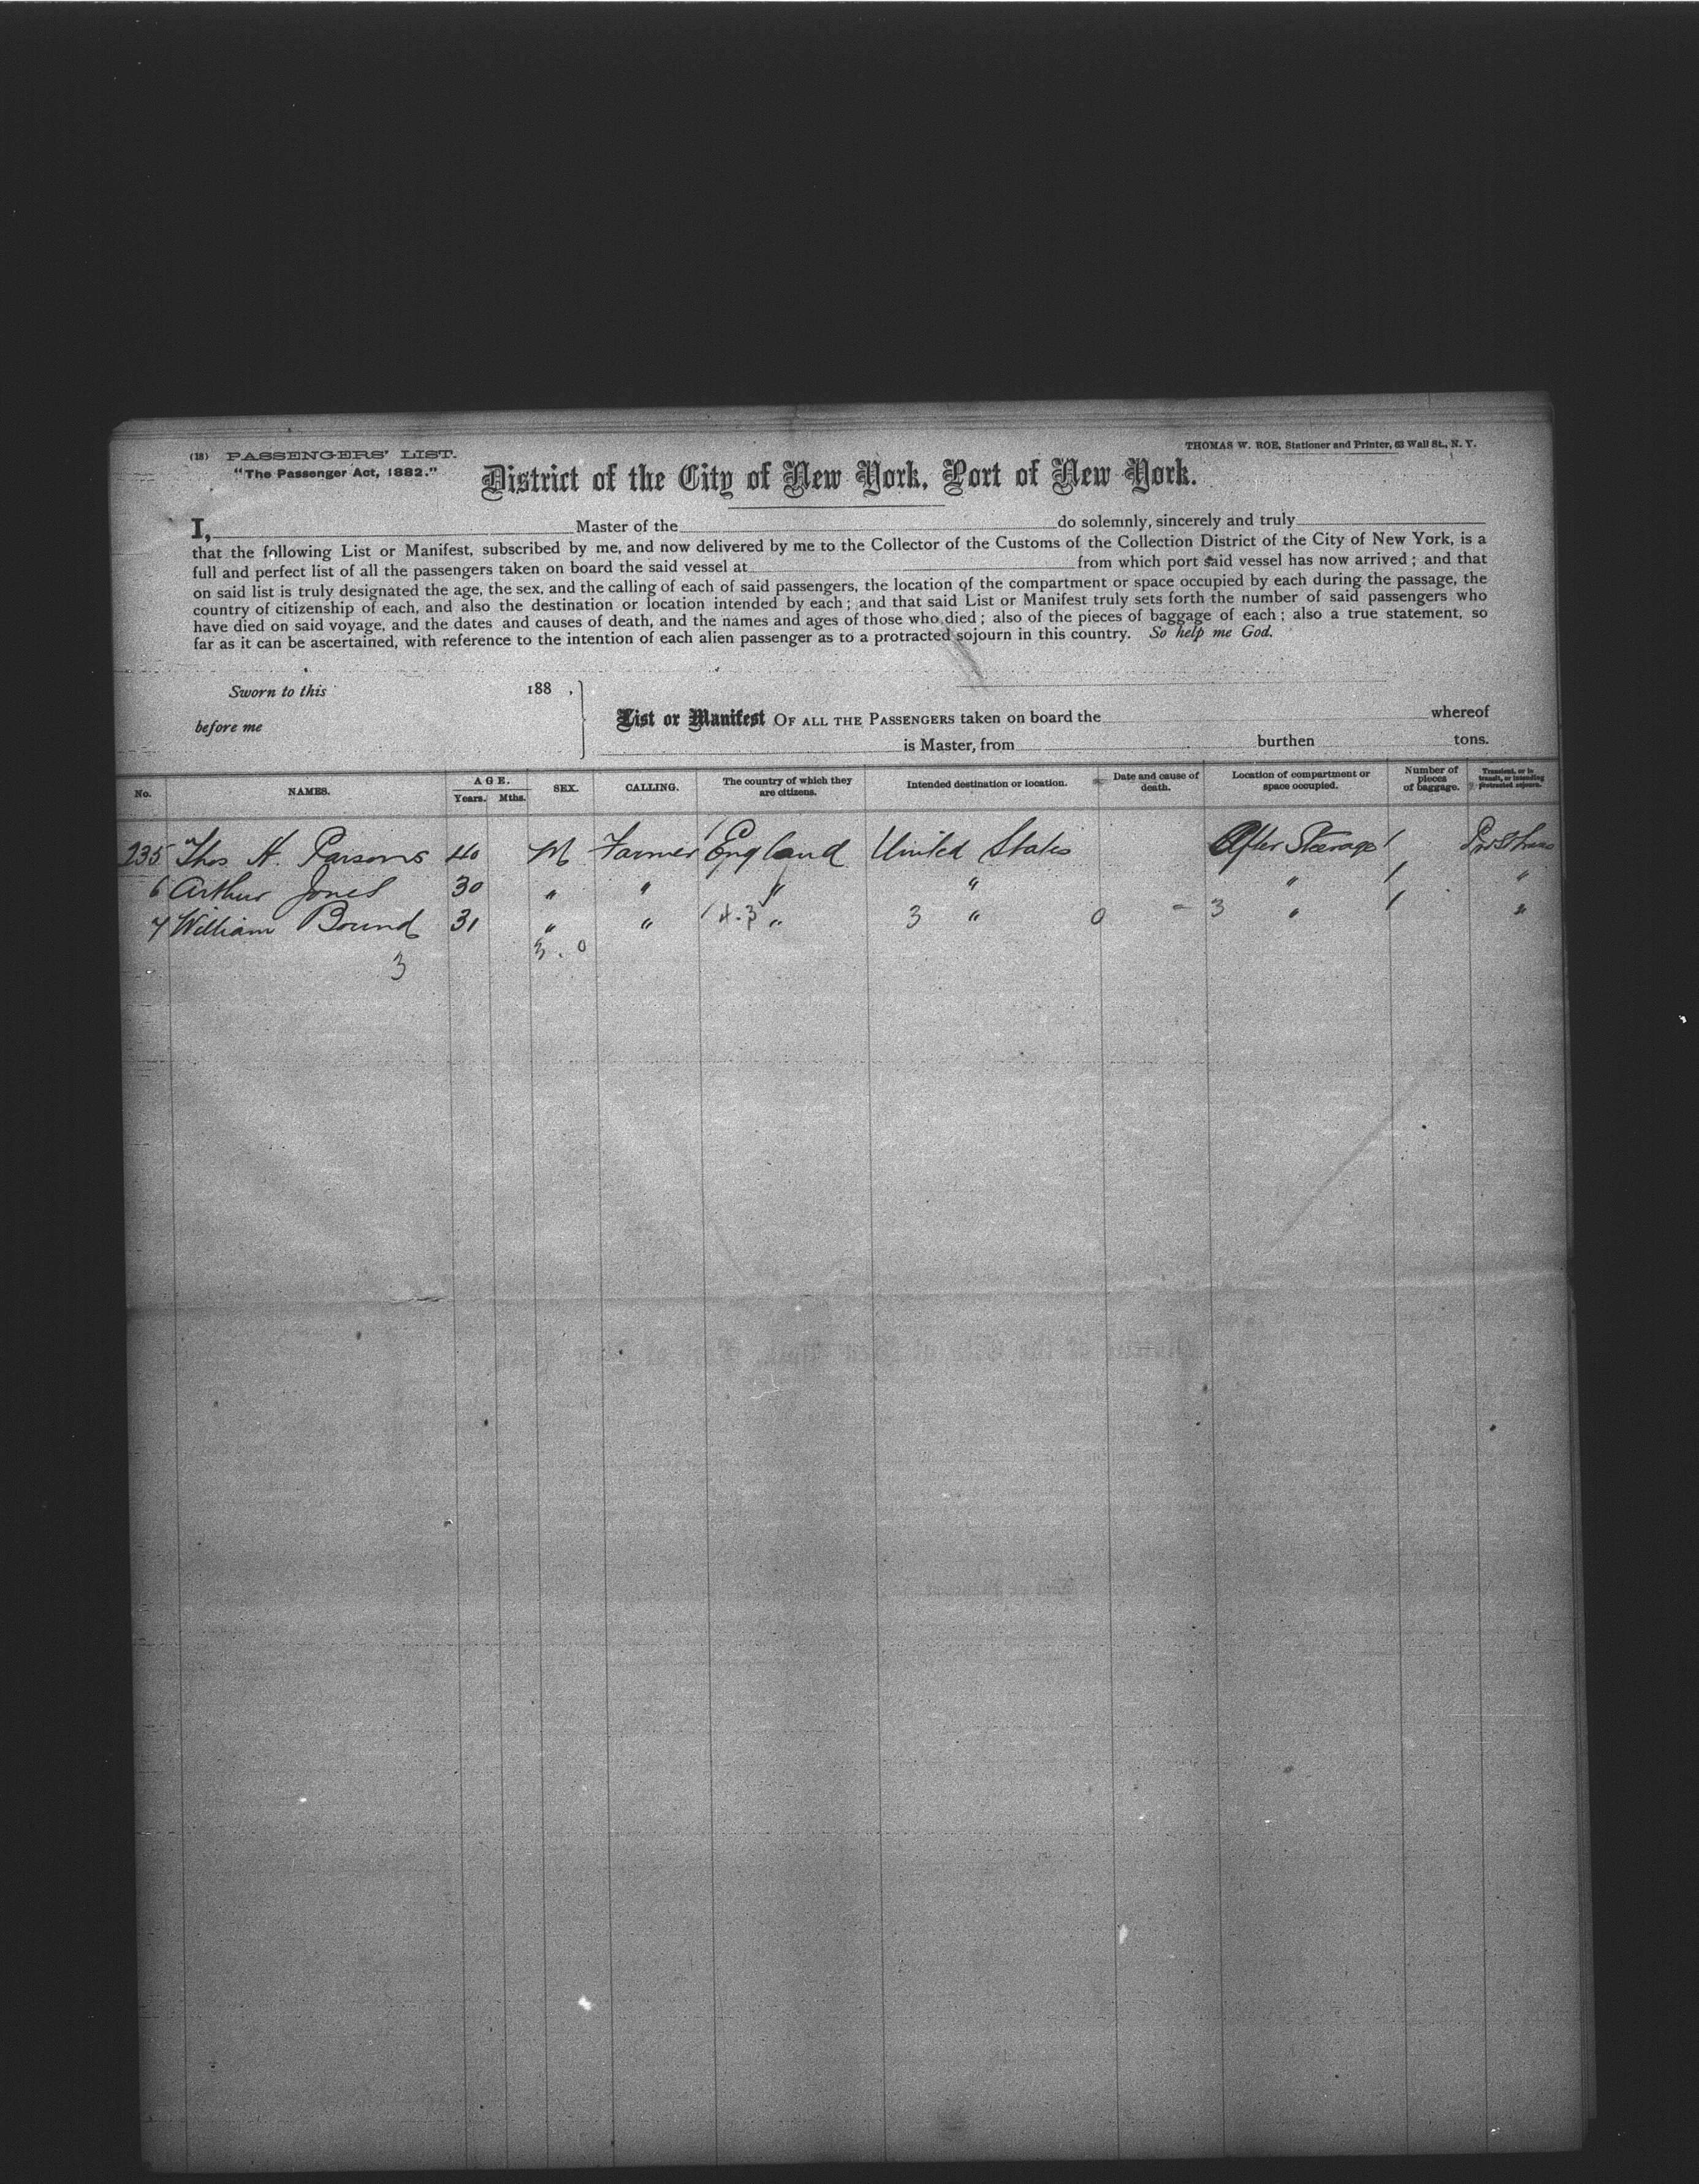 (18) PASSENGERS' LIST.
THOMAS W. ROE, Stationer and Printer, 63 Wall St., N. Y.
"The Passenger Act, 1882."
District of the City of New York, Port of New York.
I, Master of the do solemnly, sincerely and truly
that the following List or Manifest, subscribed by me, and now delivered by me to the Collector of the Customs of the Collection District of the City of New York, is a
full and perfect list of all the passengers taken on board the said vessel at from which port said vessel has now arrived; and that
on said list is truly designated the age, the sex, and the calling of each of said passengers, the location of the compartment or space occupied by each during the passage, the
country of citizenship of each, and also the destination or location intended by each; and that said List or Manifest truly sets forth the number of said passengers who
have died on said voyage, and the dates and causes of death, and the names and ages of those who died; also of the pieces of baggage of each; also a true statement, so
far as it can be ascertained, with reference to the intention of each alien passenger as to a protracted sojourn in this country. So help me God.
Sworn to this 188 ,
before me
List or Manifest OF ALL THE PASSENGERS taken on board the whereof
is Master, from burthen tons.
No. NAMES. AGE. Years. Mths. SEX. CALLING. The country of which they are citizens. Intended destination or location. Date and cause of death. Location of compartment or space occupied. Number of pieces of baggage. Transient, or in transit, or intending protracted sojourn.
235 Thos H. Parsons 40 M Farmer England United States After Steerage 1
6 Arthur Jones 30 " " " " " 1 "
7 William Bound 31 " " 4.3 " 3 " 0 - 3 " 1 "
3 3.0